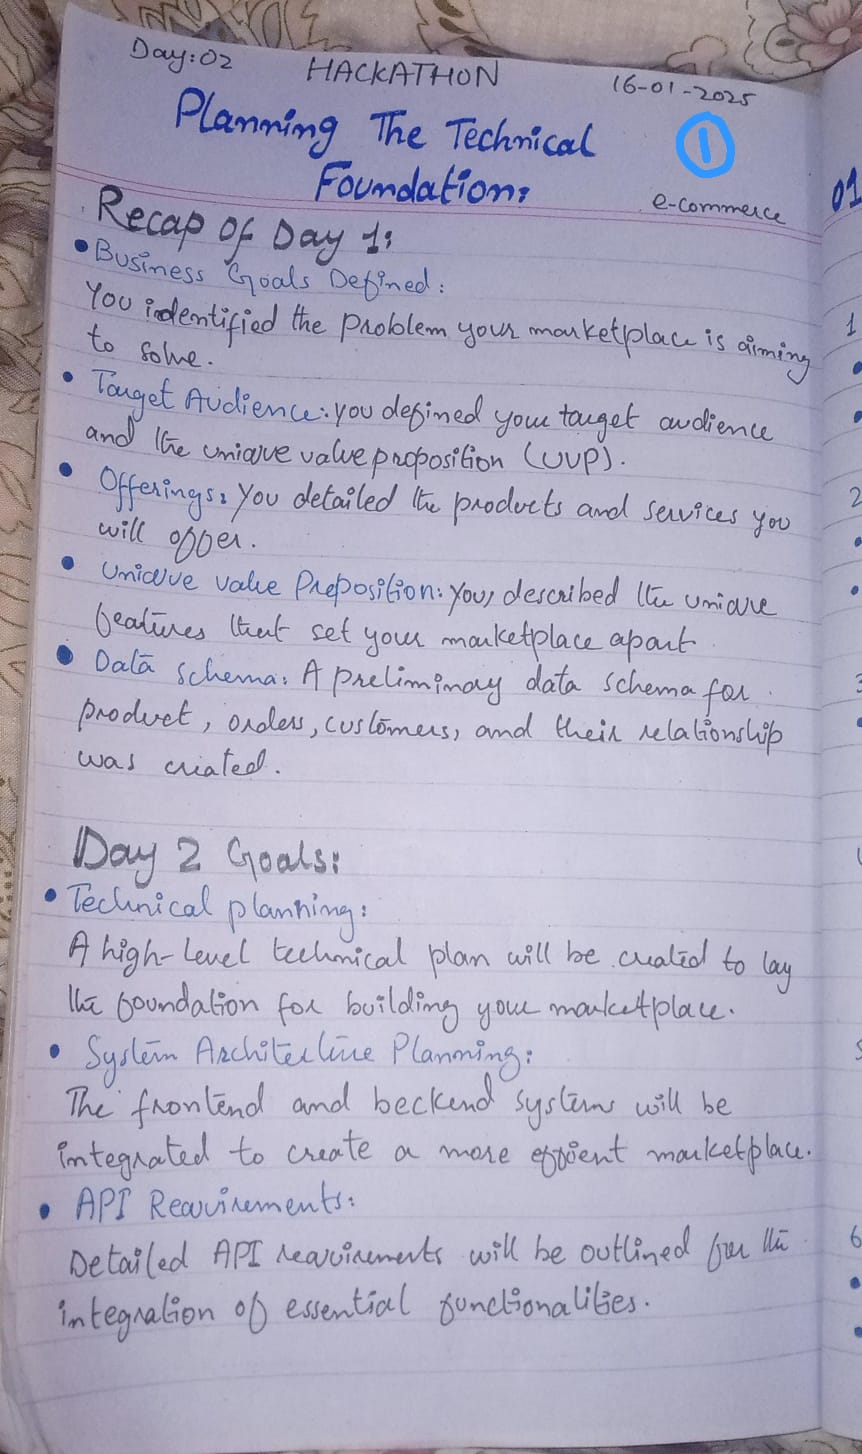 Day:02 HACKATHON 16-01-2025
Planning The Technical
Foundation:
1
e-commerce
Recap of Day 1:
• Business Goals Defined:
You indentified the problem your marketplace is aiming
to solve.
• Target Audience: you defined your target audience
and the unique value proposition (UVP).
• Offerings: You detailed the products and services you
will offer.
• Unique value Preposition: You, described the unique
features that set your marketplace apart.
• Data Schema: A preliminary data schema for
product, orders, customers, and their relationship
was created.
Day 2 Goals:
• Technical planning:
A high-level technical plan will be created to lay
the foundation for building your marketplace.
• System Architecture Planning:
The frontend and beckend systems will be
integrated to create a more effient marketplace.
• API Requirements:
Detailed API requirements will be outlined for the
integration of essential functionalities.
01
1
2
3
6